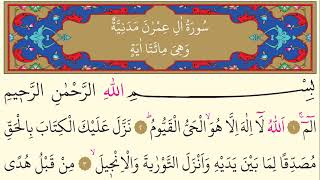 سُورَةُ اٰلِ عِمْرٰنَ مَدَنِيَّةٌ
وَهِىَ مِائَتَا اٰيَةٍ
بِسْــــمِ اللهِ الرَّحْمٰنِ الرَّحِيمِ
الٓمٓ ۚ ﴿١﴾ اَللهُ لَٓا اِلٰهَ اِلَّا هُوَۙ الْحَىُّ الْقَيُّومُۜ ﴿٢﴾ نَزَّلَ عَلَيْكَ الْكِتَابَ بِالْحَقِّ
مُصَدِّقًا لِمَا بَيْنَ يَدَيْهِ وَاَنْزَلَ التَّوْرٰيةَ وَالْاِنْجٖيلَۙ ﴿٣﴾ مِنْ قَبْلُ هُدًى